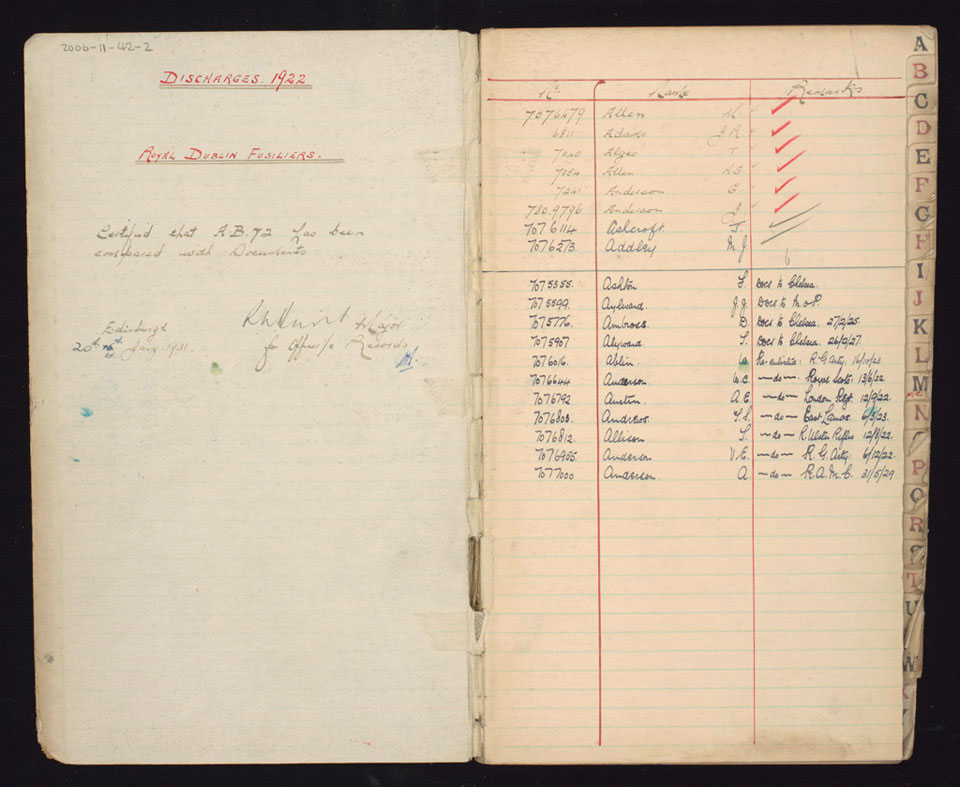 2006-11-42-2
DISCHARGES. 1922
ROYAL DUBLIN FUSILIERS.
Certified that A.B.72 has been
compared with Documents
Major
Edinburgh
for Officer i/c Records
20th Jany. 1931.
No. Name Remarks
7076479 Allen
6811 Adams J R
7040 Algeo T.
7054 Allen
7241 Anderson E.
7809796 Anderson J.
7076114 Ashcroft. J.
7076273. Addley M. J.
6
7075355. Ashton Docs to Chelsea.
7075599. Aylward J.J. Docs to M.of P.
7075776. Ambrose. D. Docs to Chelsea. 27/2/25.
7075907 Alyward Docs to Chelsea. 26/2/27.
7076016. Ablin Re-enlisted: R.G. Arty.
7076644 Anderson. W.C. —do— Royal Scots: 13/6/22
7076792 Austin A.E. —do— London Regt. 12/9/22.
7076803. Andrews. —do— East Lancs. 6/3/23.
7076812. Allison —do— R. Ulster Rifles 12/8/22.
7076955. Anderson V.E. —do— R.G. Arty. 6/12/22
7077000 Anderson. A. —do— R.A.M.C. 31/5/29
A
B
C
D
E
F
G
H
I
J
K
L
M
Mc
N
P
Q
R
T
U
W